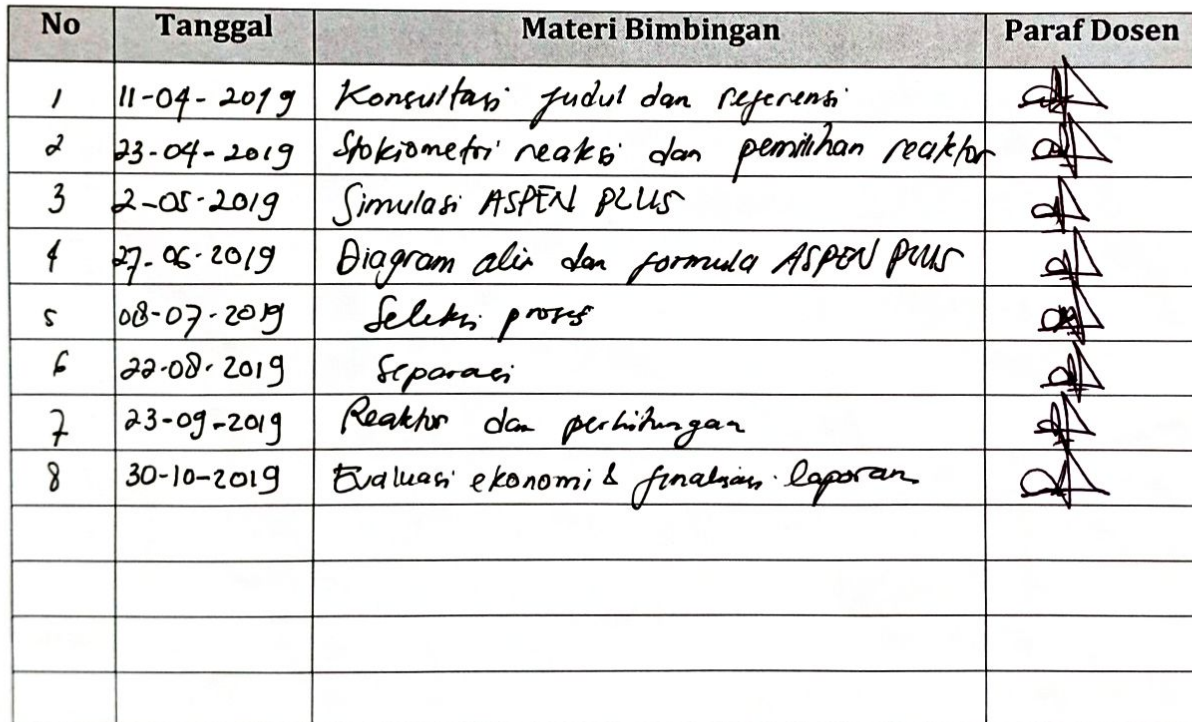 No Tanggal Materi Bimbingan Paraf Dosen
1 11-04-2019 Konsultasi judul dan referensi
2 23-04-2019 Stokiometri reaksi dan pemilihan reaktor
3 2-05-2019 Simulasi ASPEN PLUS
4 27-06-2019 Diagram alir dan formula ASPEN PLUS
5 08-07-2019 Seleksi proses
6 22-08-2019 Separasi
7 23-09-2019 Reaktor dan perhitungan
8 30-10-2019 Evaluasi ekonomi & finalisasi laporan